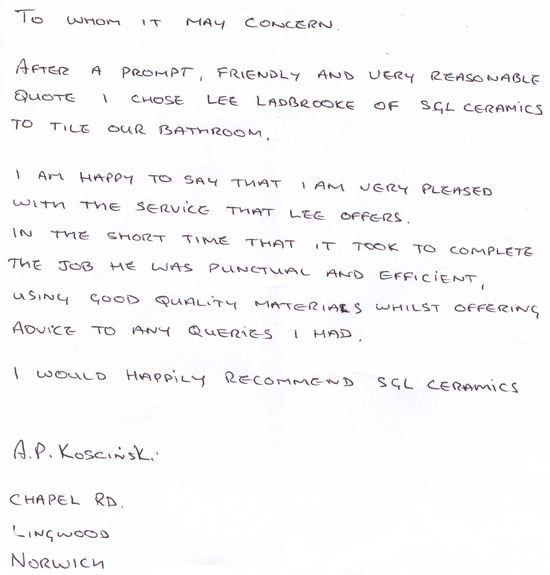 TO WHOM IT MAY CONCERN.
AFTER A PROMPT, FRIENDLY AND VERY REASONABLE
QUOTE I CHOSE LEE LADBROOKE OF SGL CERAMICS
TO TILE OUR BATHROOM.
I AM HAPPY TO SAY THAT I AM VERY PLEASED
WITH THE SERVICE THAT LEE OFFERS.
IN THE SHORT TIME THAT IT TOOK TO COMPLETE
THE JOB HE WAS PUNCTUAL AND EFFICIENT,
USING GOOD QUALITY MATERIALS WHILST OFFERING
ADVICE TO ANY QUERIES I HAD.
I WOULD HAPPILY RECOMMEND SGL CERAMICS
A.P. KOSCIŃSKI.
CHAPEL RD.
LINGWOOD
NORWICH